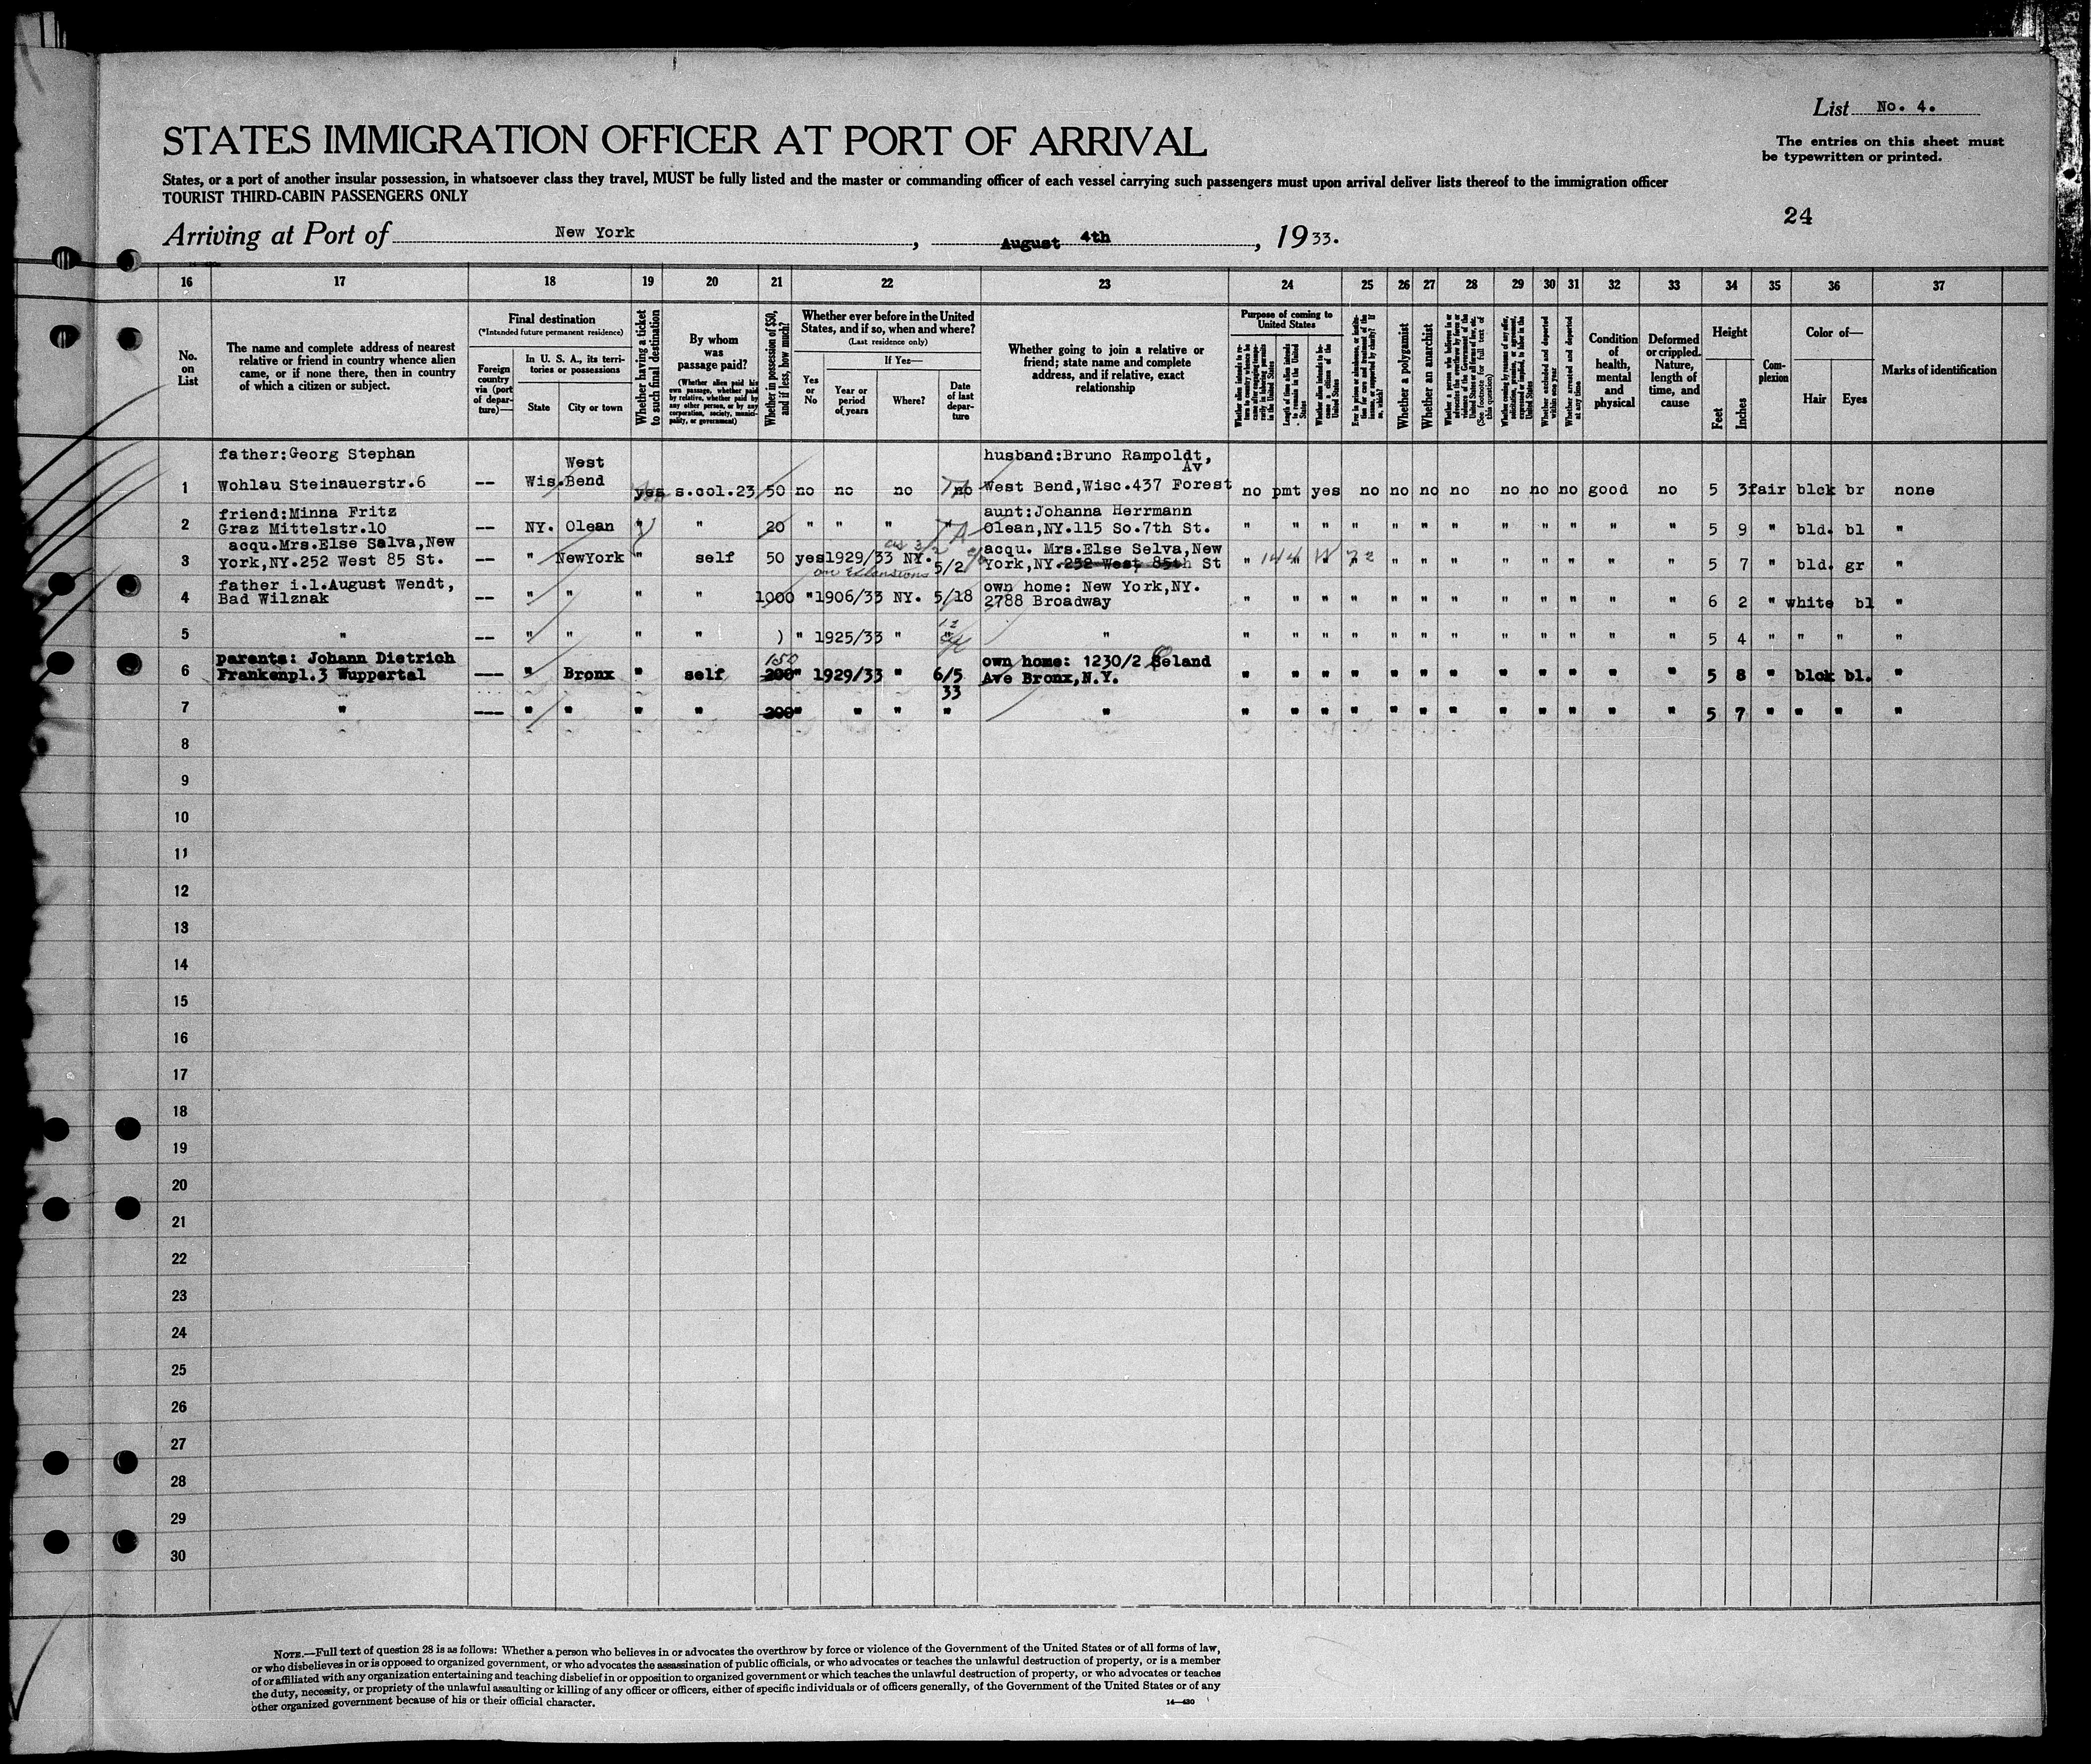 List No. 4.
The entries on this sheet must
be typewritten or printed.
STATES IMMIGRATION OFFICER AT PORT OF ARRIVAL
States, or a port of another insular possession, in whatsoever class they travel, MUST be fully listed and the master or commanding officer of each vessel carrying such passengers must upon arrival deliver lists thereof to the immigration officer
TOURIST THIRD-CABIN PASSENGERS ONLY
24
Arriving at Port of New York, August 4th, 1933.
16 17 18 19 20 21 22 23 24 25 26 27 28 29 30 31 32 33 34 35 36 37
No.
on
List
The name and complete address of nearest
relative or friend in country whence alien
came, or if none there, then in country
of which a citizen or subject.
Final destination
(*Intended future permanent residence)
Foreign
country
via (port
of depar-
ture)—
In U. S. A., its terri-
tories or possessions
State
City or town
Whether having a ticket
to such final destination
By whom
was
passage paid?
(Whether alien paid his
own passage, whether paid
by relative, whether paid by
any other person, or by any
corporation, society, munici-
pality, or government)
Whether in possession of $50,
and if less, how much?
Whether ever before in the United
States, and if so, when and where?
(Last residence only)
Yes
or
No
If Yes—
Year or
period
of years
Where?
Date
of last
depar-
ture
Whether going to join a relative or
friend; state name and complete
address, and if relative, exact
relationship
Purpose of coming to
United States
Whether a polygamist
Whether an anarchist
Whether excluded and deported
within one year
Whether arrested and deported
at any time
Condition
of
health,
mental
and
physical
Deformed
or crippled.
Nature,
length of
time, and
cause
Height
Feet
Inches
Com-
plexion
Color of—
Hair
Eyes
Marks of identification
1 father:Georg Stephan
Wohlau Steinauerstr.6 -- Wis. West
Bend yes s.col.23 50 no no no no husband:Bruno Rampoldt,
Av
West Bend,Wisc.437 Forest no pmt yes no no no no no no no good no 5 3 fair blck br none
2 friend:Minna Fritz
Graz Mittelstr.10 -- NY. Olean " " 20 " " " " aunt:Johanna Herrmann
Olean,NY.115 So.7th St. " " " " " " " " " " " " 5 9 " bld. bl "
3 acqu.Mrs.Else Salva,New
York,NY.252 West 85 St. -- " NewYork " self 50 yes 1929/33 NY. 5/2 acqu. Mrs.Else Selva,New
York,NY.252 West 85th St " " " " " " " " " " " 5 7 " bld. gr "
on Extensions
4 father i.l.August Wendt,
Bad Wilznak -- " " " " 1000 " 1906/33 NY. 5/18 own home: New York,NY.
2788 Broadway " " " " " " " " " " " " 6 2 " white bl "
5 " -- " " " " ) " 1925/33 " " " " " " " " " " " " " " " " 5 4 " " " "
6 parents: Johann Dietrich
Frankenpl.3 Wuppertal --- " Bronx " self 150
200 " 1929/33 " 6/5
33 own home: 1230/2 Seland
Ave Bronx,N.Y. " " " " " " " " " " " " 5 8 " blck bl. "
7 " --- " " " " 200 " " " " " " " " " " " " " " " " " 5 7 " " " "
8
9
10
11
12
13
14
15
16
17
18
19
20
21
22
23
24
25
26
27
28
29
30
NOTE.—Full text of question 28 is as follows: Whether a person who believes in or advocates the overthrow by force or violence of the Government of the United States or of all forms of law,
or who disbelieves in or is opposed to organized government, or who advocates the assassination of public officials, or who advocates or teaches the unlawful destruction of property, or is a member
of or affiliated with any organization entertaining and teaching disbelief in or opposition to organized government or which teaches the unlawful destruction of property, or who advocates or teaches
the duty, necessity, or propriety of the unlawful assaulting or killing of any officer or officers, either of specific individuals or of officers generally, of the Government of the United States or of any
other organized government because of his or their official character.
14—430